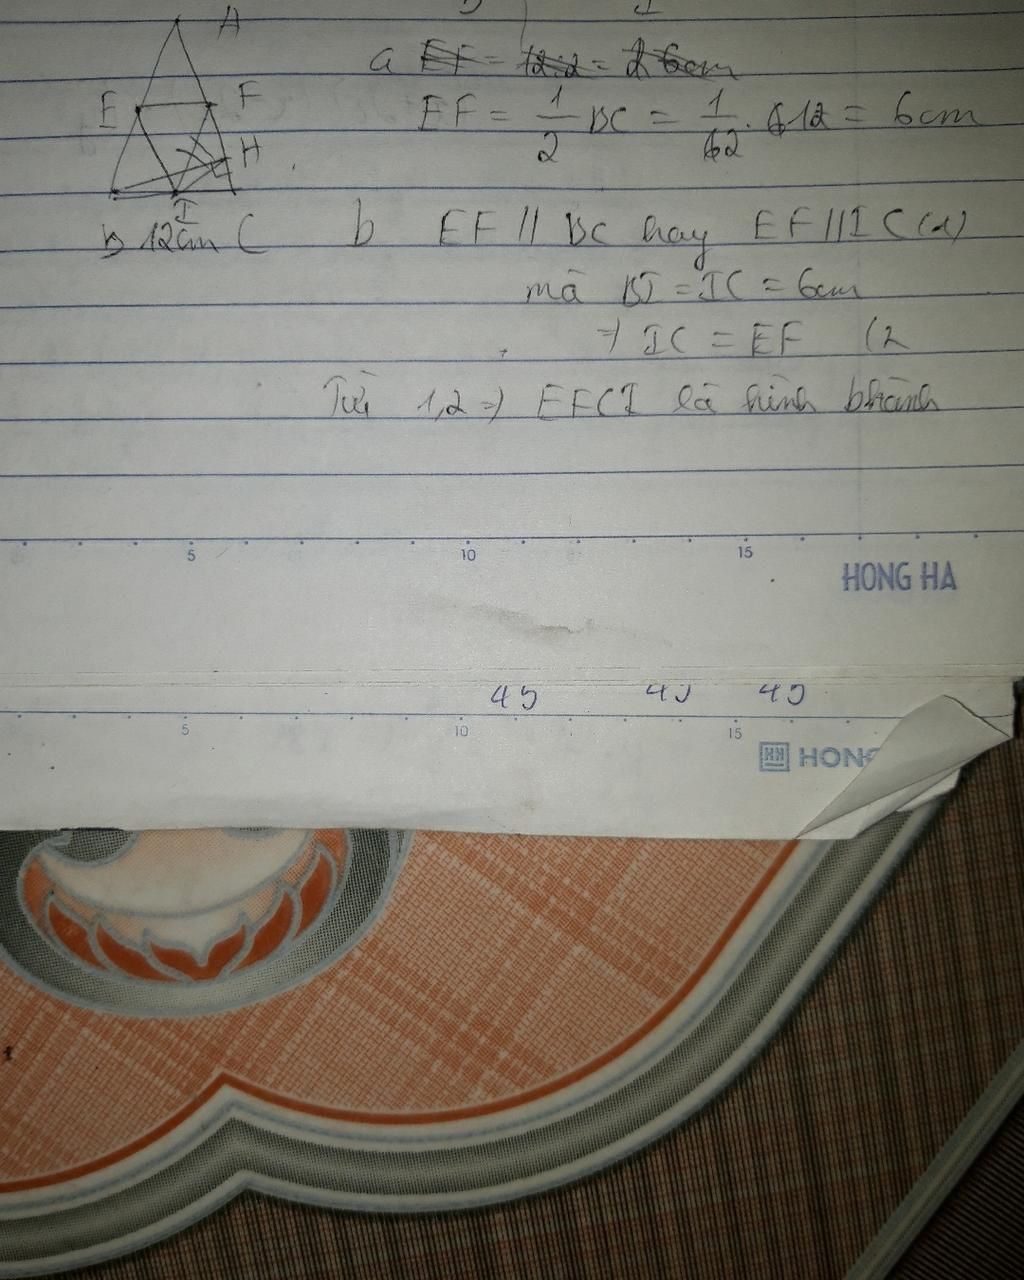 A
a EF = 12:2 = 6cm
E F EF = 1/2 BC = 1/2 . 12 = 6cm
H
I
B 12cm C b EF // BC hay EF // IC (1)
mà BI = IC = 6cm
=> IC = EF (2
Từ 1,2 => EFCI là hình bhành
5 10 15
HONG HA
45 45 45
5 10 15
HONG